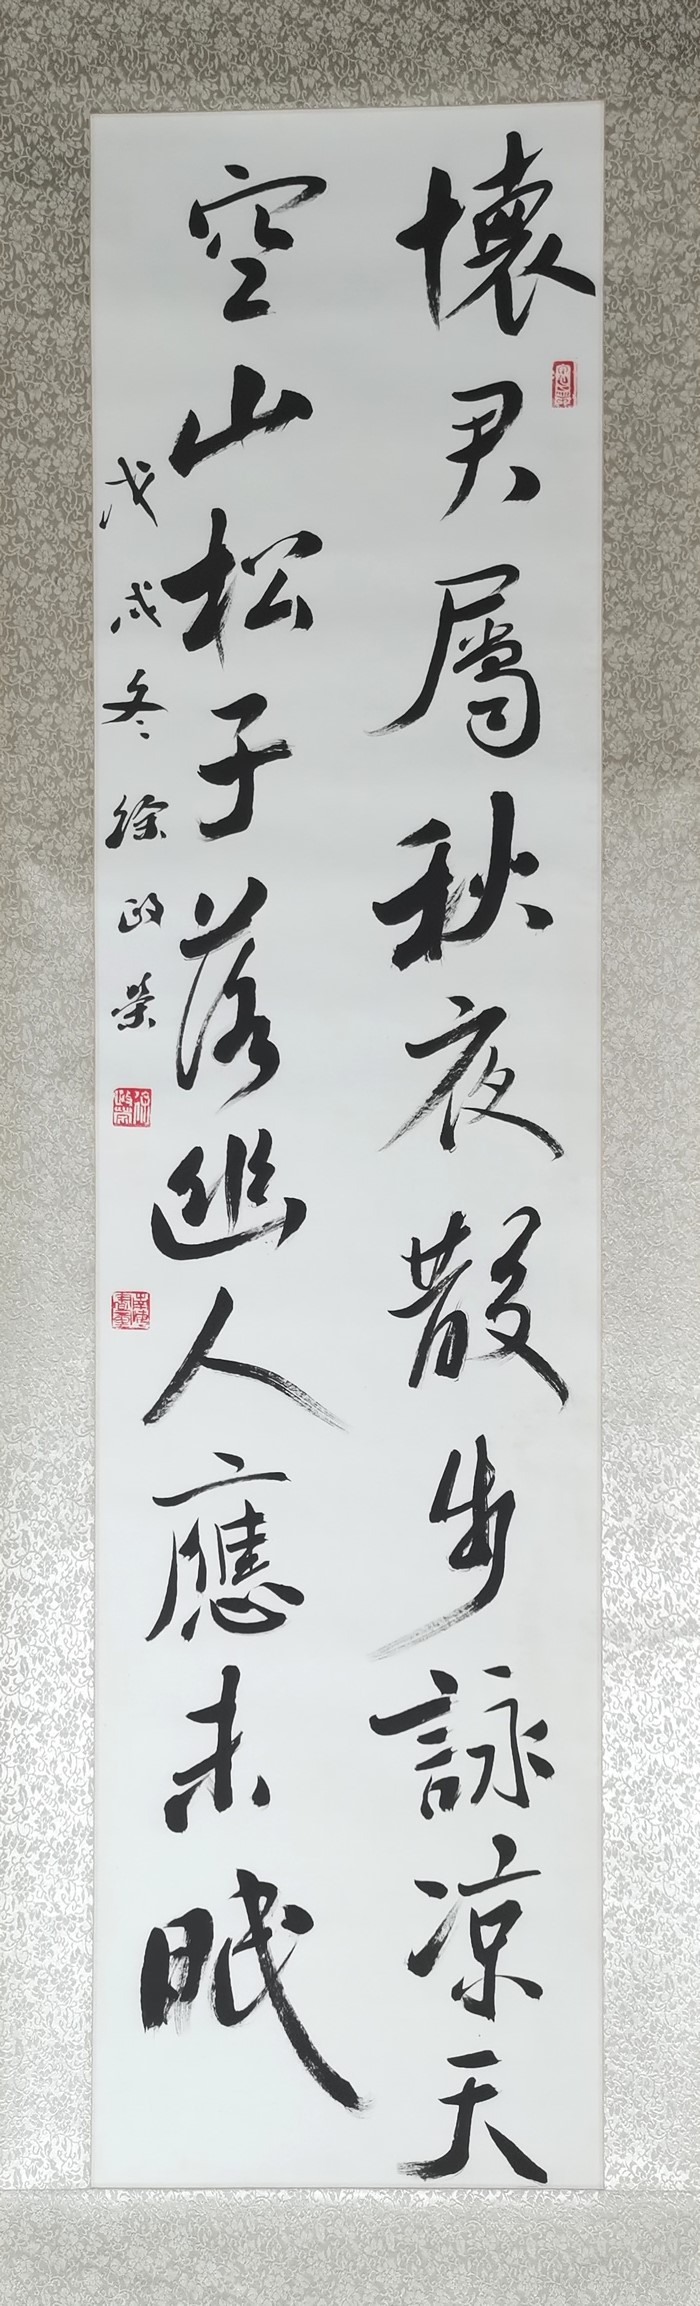 懷君屬秋夜散步詠凉天
空山松子落幽人應未眠
戊戌冬徐政榮